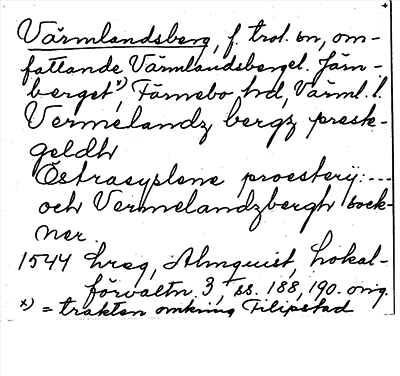 Värmlandsberg, f. trol. sn, om-
fattande Värmlandsberget. Järn-
berget x), Färnebo hd, Värml. l.
Vermelandz bergz presk-
geldh
Östrasyslene proesterij ...
och Vermelandzbergh sock-
ner.
1544 hreg, Almquist, Lokal-
förvaltn 3, ss. 188, 190. orig.
x) = trakten omkring Filipstad